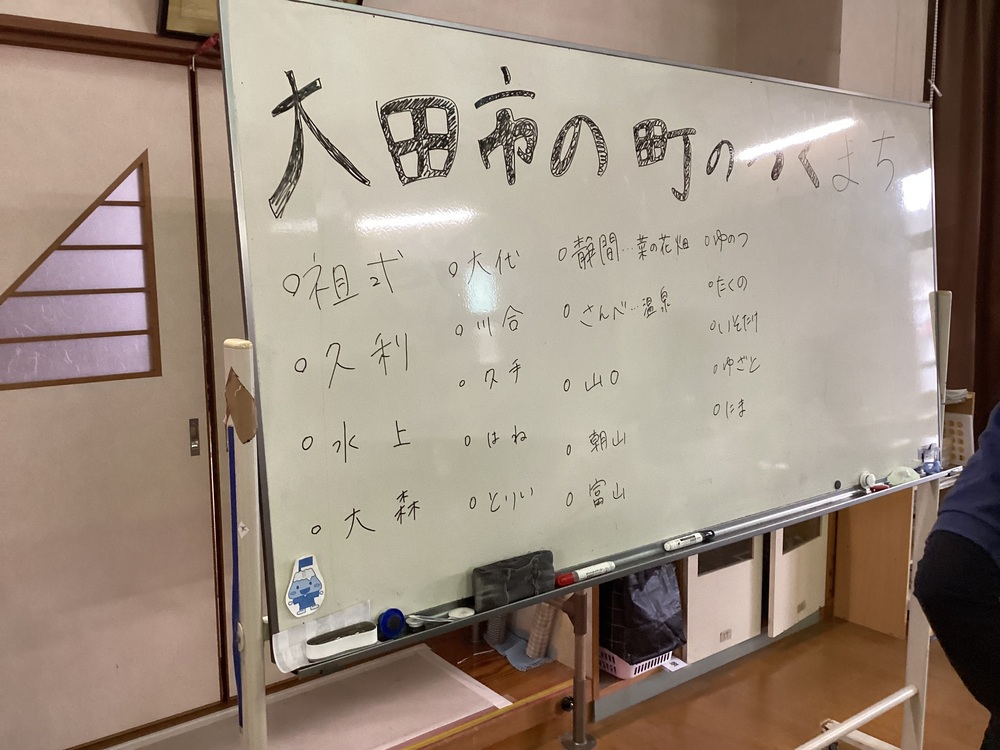 大田市の町の くまち
○祖式
○久利
○水上
○大森
○大代
○川合
○久手
○はね
○とりい
○静間…菜の花畑
○さんべ…温泉
○山口
○朝山
○富山
○ゆのつ
○たくの
○いそたけ
○ゆざと
○にま